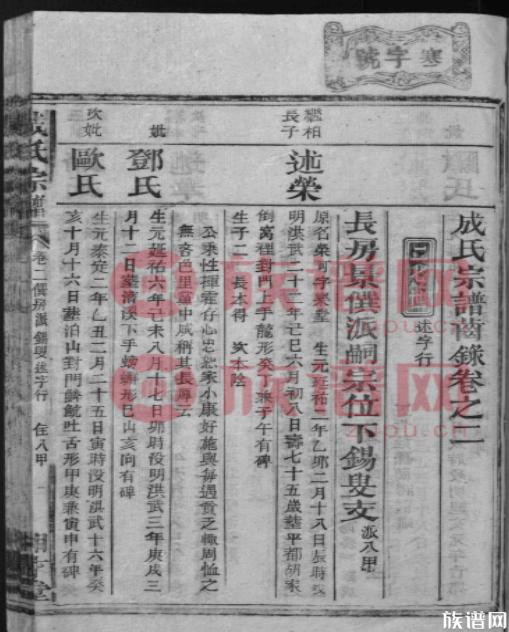 寒字號
成氏宗譜齒錄卷之二
述字行
長房景僎派嗣宗位下錫叟支 派八甲
繼柏
長子
述榮
原名榮 字榮堂 生元延祐 年乙卯二月十八日辰時沒
明洪武二十二年己巳六月初八日壽七十五歲葬平都胡家
倒窩裡對門上手龍形癸 兼子午有碑
生子二 長本得 次本陰
公秉性揮霍存心忠 家小康好施與每遇貧乏輒周恤之
無吝色里黨中咸稱其長厚云
妣
鄧氏
生元延祐六年己未八月十七日卯時沒明洪武三年庚戌三
月十二日葬 溪下手螃蟹形巳山亥向有碑
次妣
歐氏
生元泰定二年乙丑二月二十五日寅時沒明洪武十六年癸
亥十月十六日葬泊山對門 吐舌形甲庚兼寅申有碑
成氏宗譜
卷二僎房派錫叟述字行
住八甲
族谱网
zupu.cn
族谱网
zupu.cn
族谱网
zupu.cn